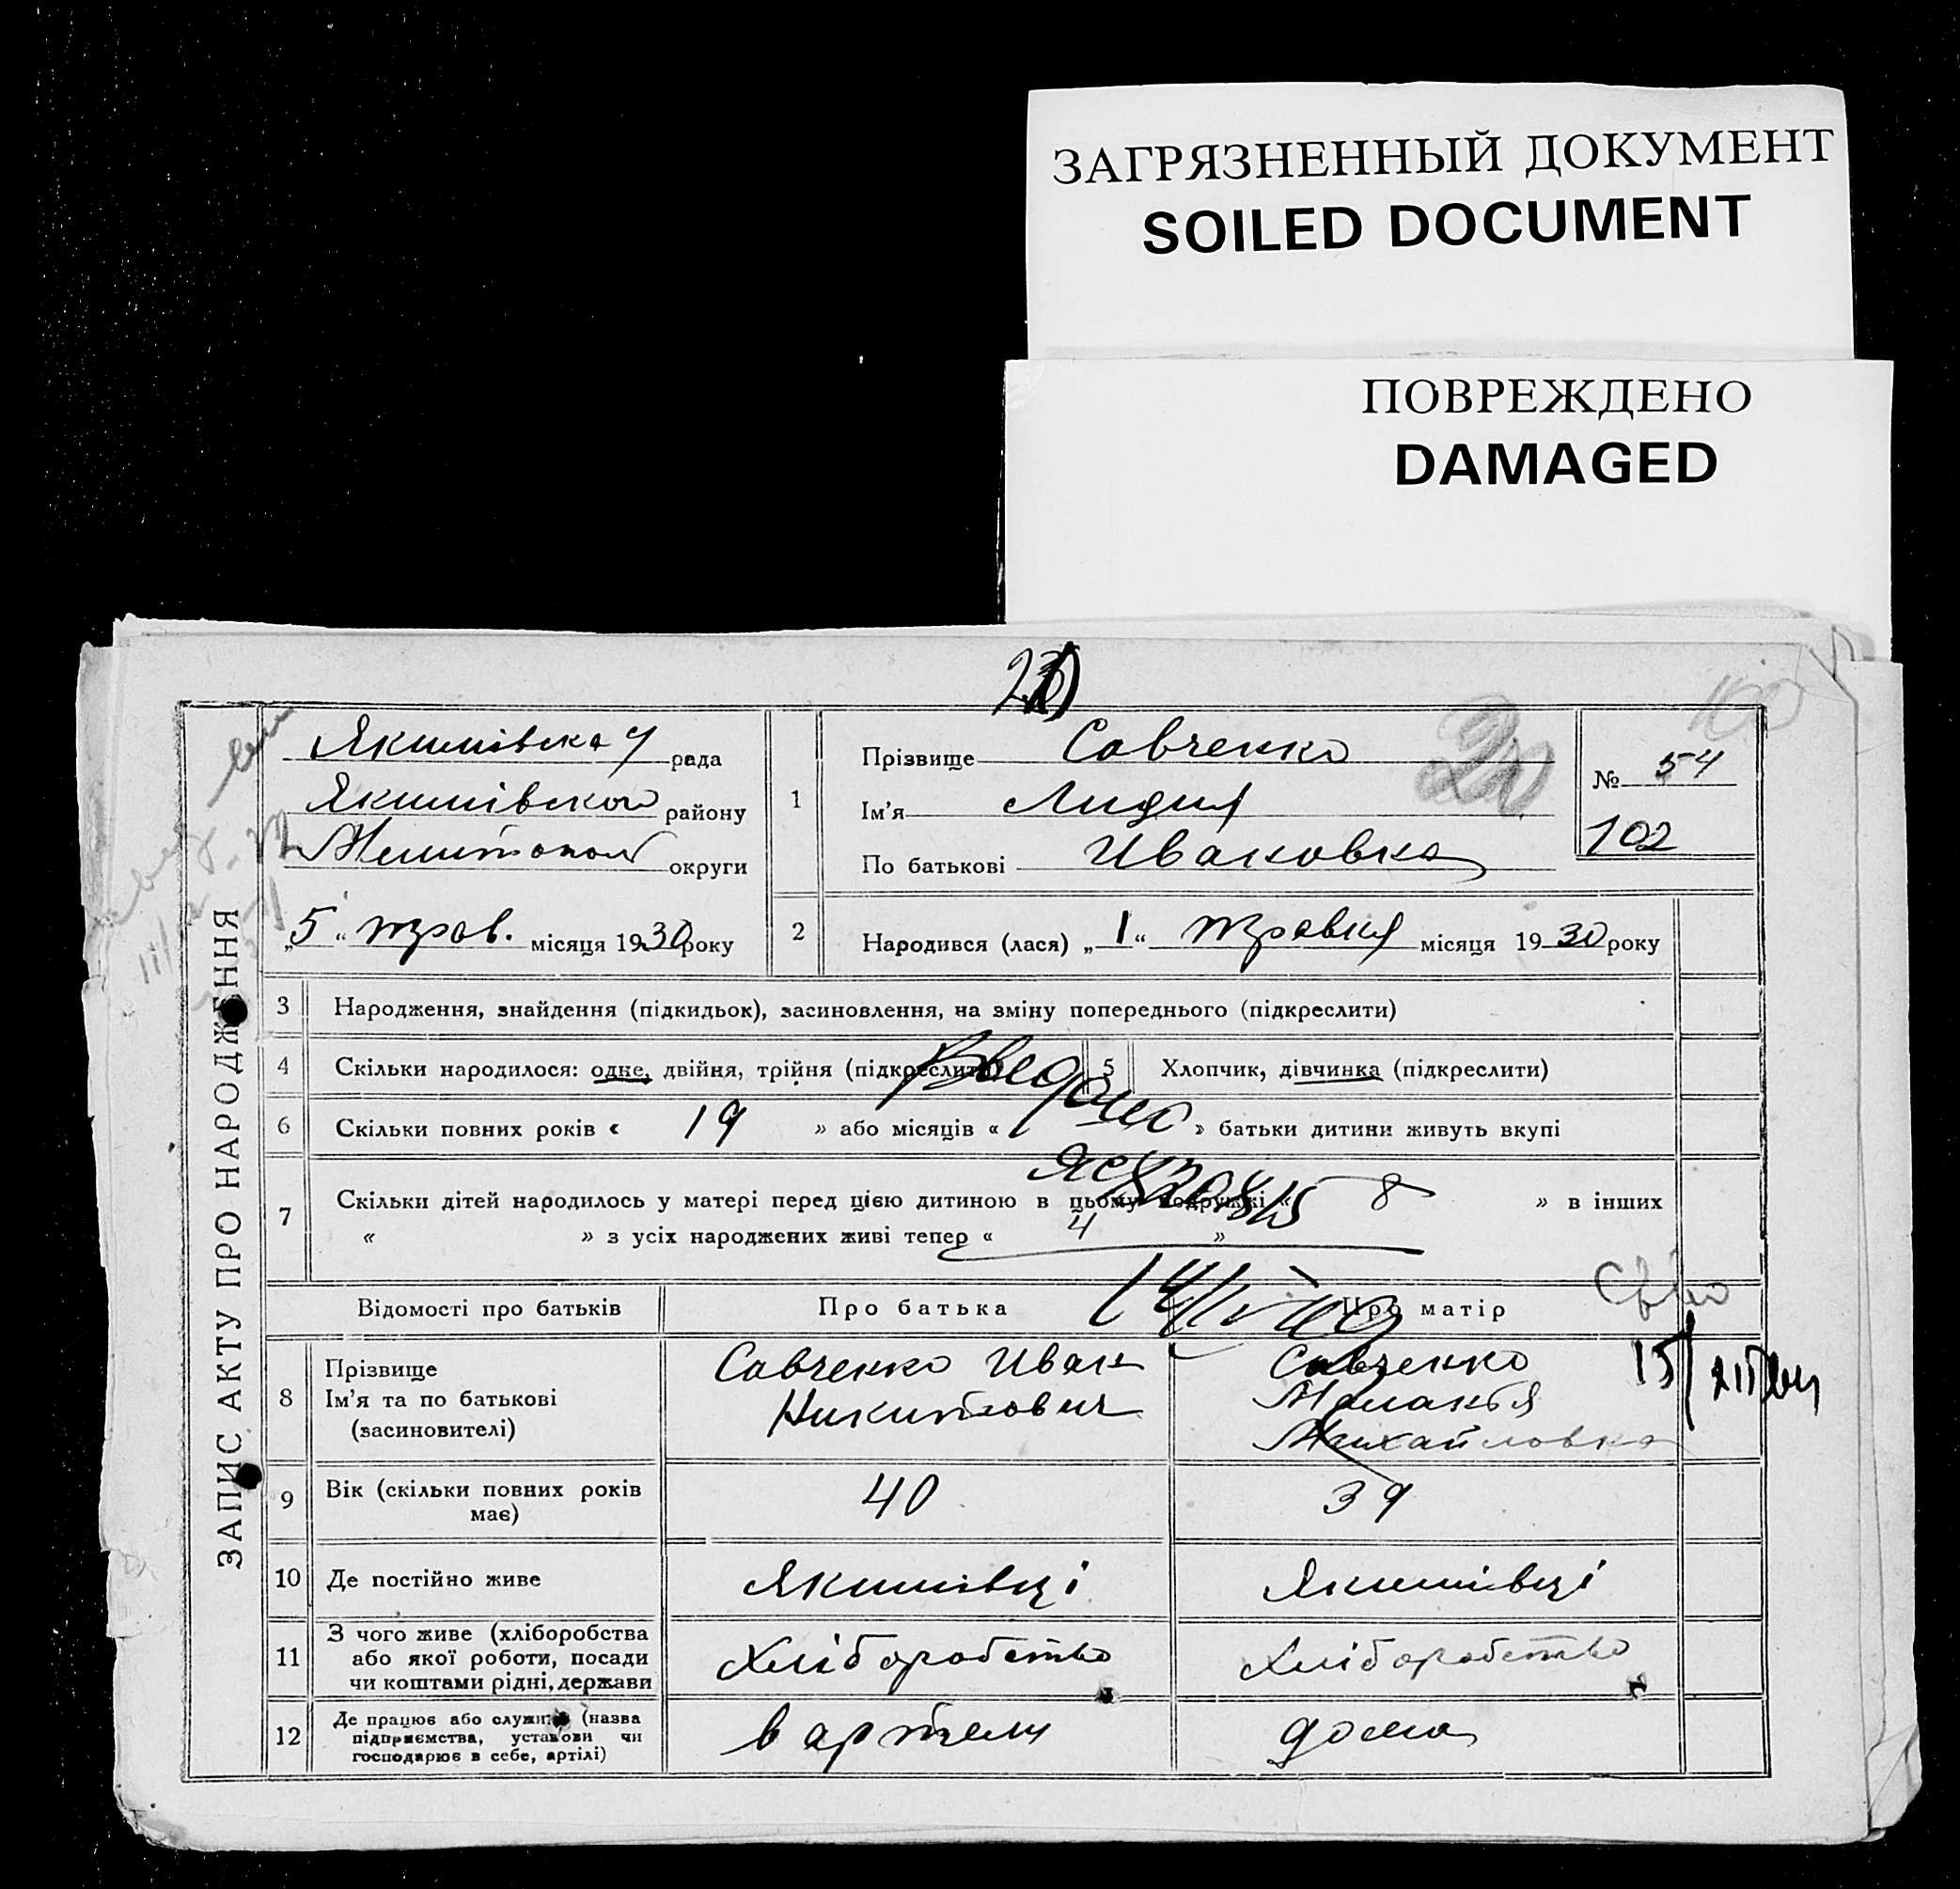 ЗАГРЯЗНЕННЫЙ ДОКУМЕНТ
SOILED DOCUMENT
ПОВРЕЖДЕНО
DAMAGED
ЗАПИС АКТУ ПРО НАРОДЖЕННЯ
Якимівська рада
Якимівского району
Мелитопол округи
„5“ трав. місяця 1930 року
1
Прізвище Савченко
Ім'я Лидия
По батькові Ивановна
№ 54
102
2
Народився (лася) „1“ травня місяця 1930 року
3 Народження, знайдення (підкидьок), засиновлення, на зміну попереднього (підкреслити)
4 Скільки народилося: одне, двійня, трійня (підкреслити) 5 Хлопчик, дівчинка (підкреслити)
6 Скільки повних років « 19 » або місяців « » батьки дитини живуть вкупі
7 Скільки дітей народилось у матері перед цією дитиною в цьому подружжі « 8 » в інших
« » з усіх народжених живі тепер « 4 »
Відомості про батьків Про батька Про матір
8 Прізвище
Ім'я та по батькові
(засиновителі)
Савченко Иван
Никитович
Савченко
Маланья
Михайловна
9 Вік (скільки повних років
має)
40 39
10 Де постійно живе Якимівці Якимівці
11 З чого живе (хліборобства
або якої роботи, посади
чи коштами рідні, держави
Хліборобство Хліборобство
12 Де працює або служить (назва
підприємства, установи чи
господарює в себе, артілі)
в артели дома